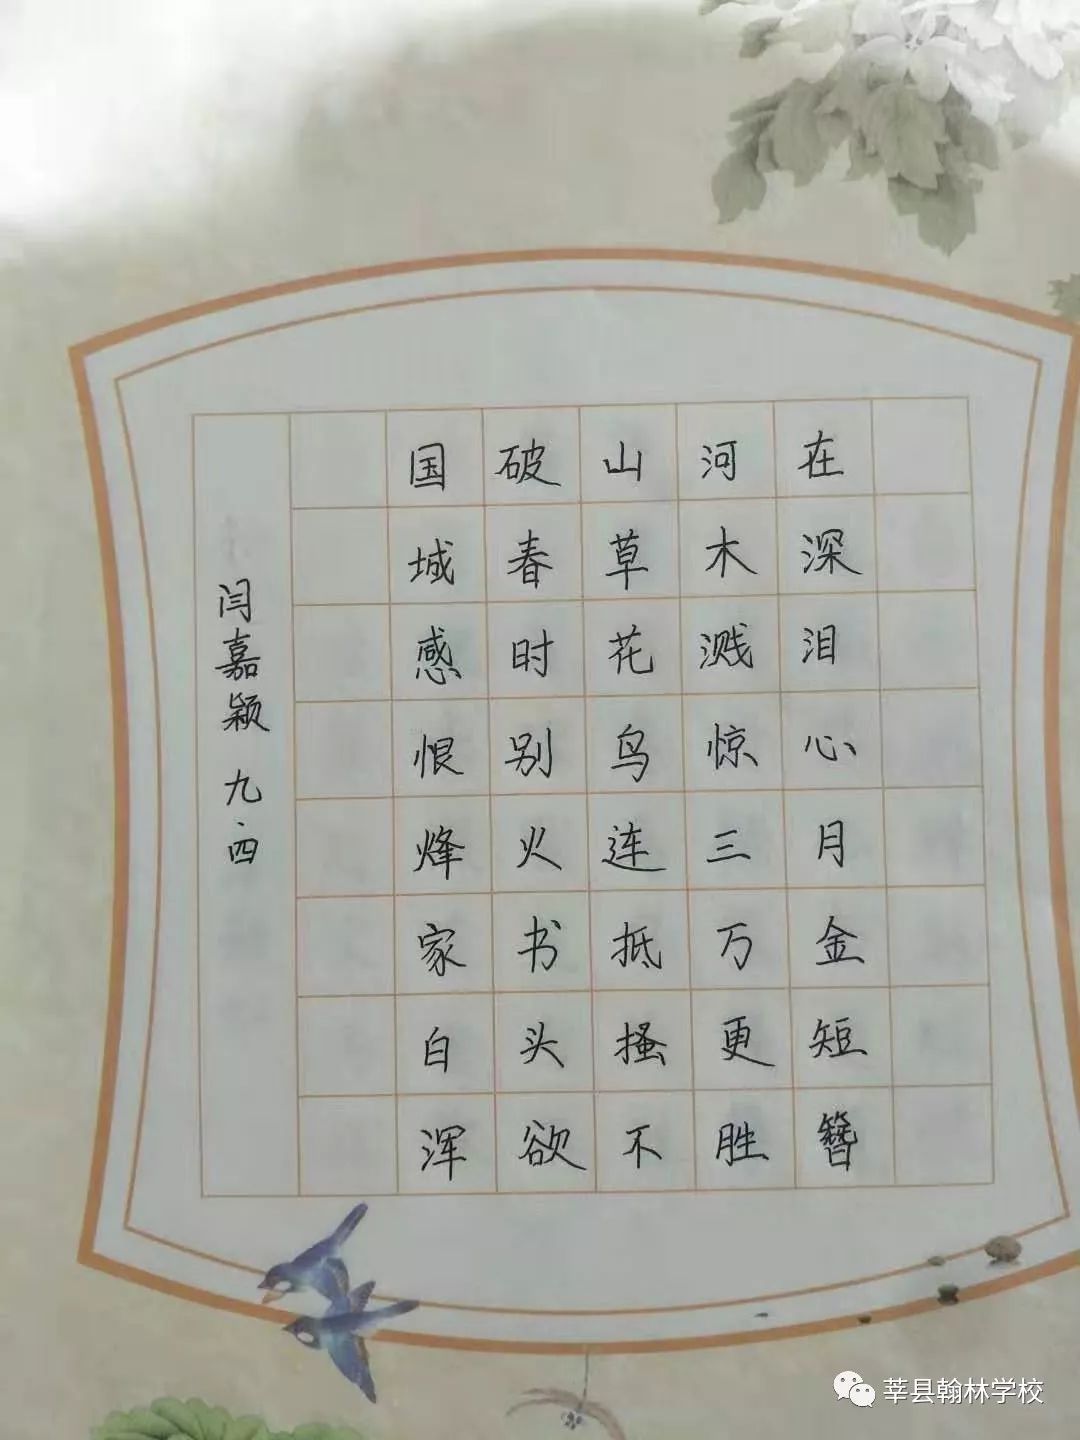 国破山河在
城春草木深
感时花溅泪
恨别鸟惊心
烽火连三月
家书抵万金
白头搔更短
浑欲不胜簪
闫嘉颖 九.四
莘县翰林学校